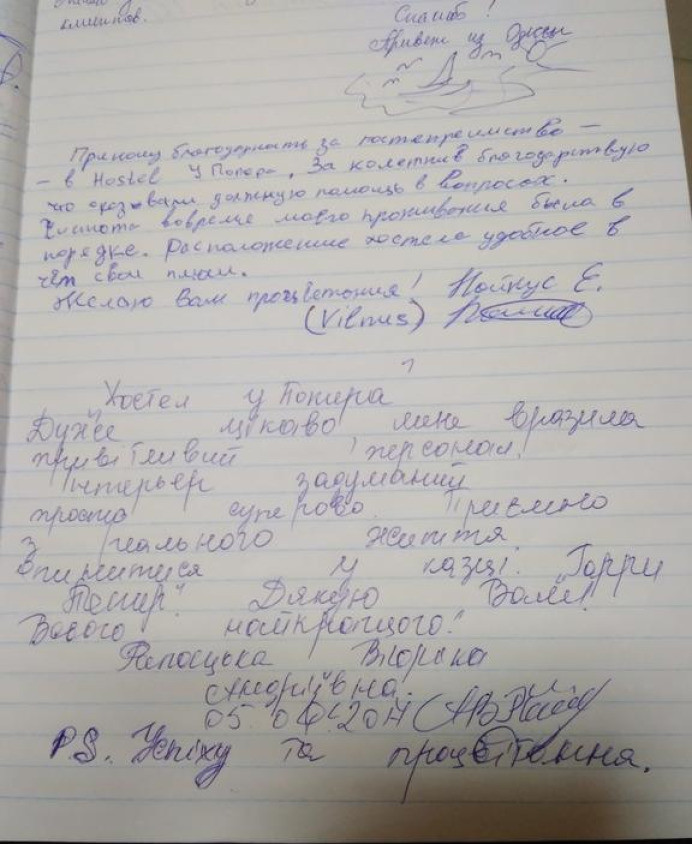 клиентов.
Спасибо!
Привет из Одессы
Приношу благодарность за гостеприимство –
– в Hostel У Потера. За коллектив благодарствую
что оказывали должную помощь в вопросах.
Чистота вовремя моего проживания была в
порядке. Расположение хостела удобное в
чём свои плюсы.
Желаю вам процветания! Е.
(Vilnus)
Хостел у Потера
Дуже цікаво мене вразила
привітливий персонал.
Інтерьєр задуманий
просто суперово. Приємно
з реального життя
опинитися у казці. "Гарри
Потир". Дякую Вам!
Всього найкращого!
Вікторіка
Андріївна.
P.S. Успіху та процвітання.